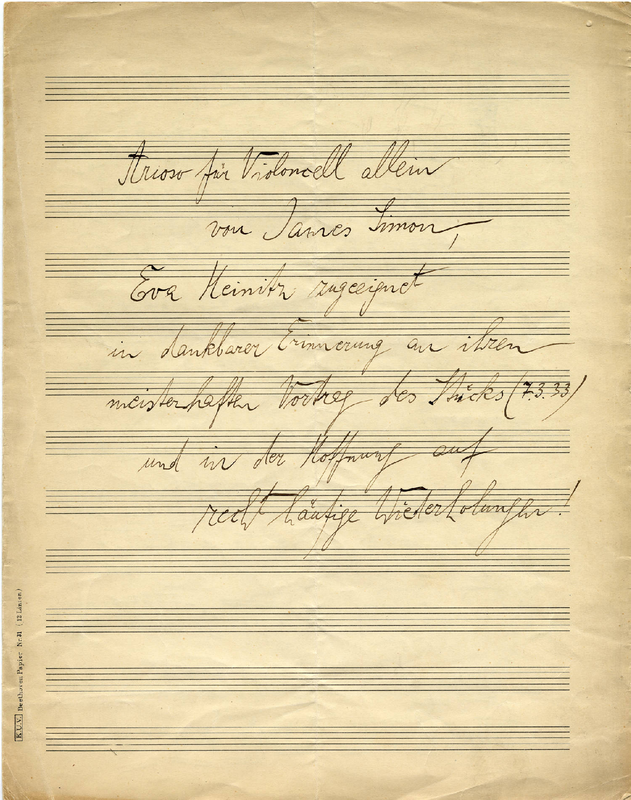 Arioso für Violoncell allein
von James Simon,
Eva Heinitz zugeeignet
in dankbarer Erinnerung an ihren
meisterhaften Vortrag des Stücks (7.3.33)
und in der Hoffnung auf
recht häufige Wiederholungen!
K.U.V. Beethoven Papier Nr. 31 (12 Linien)